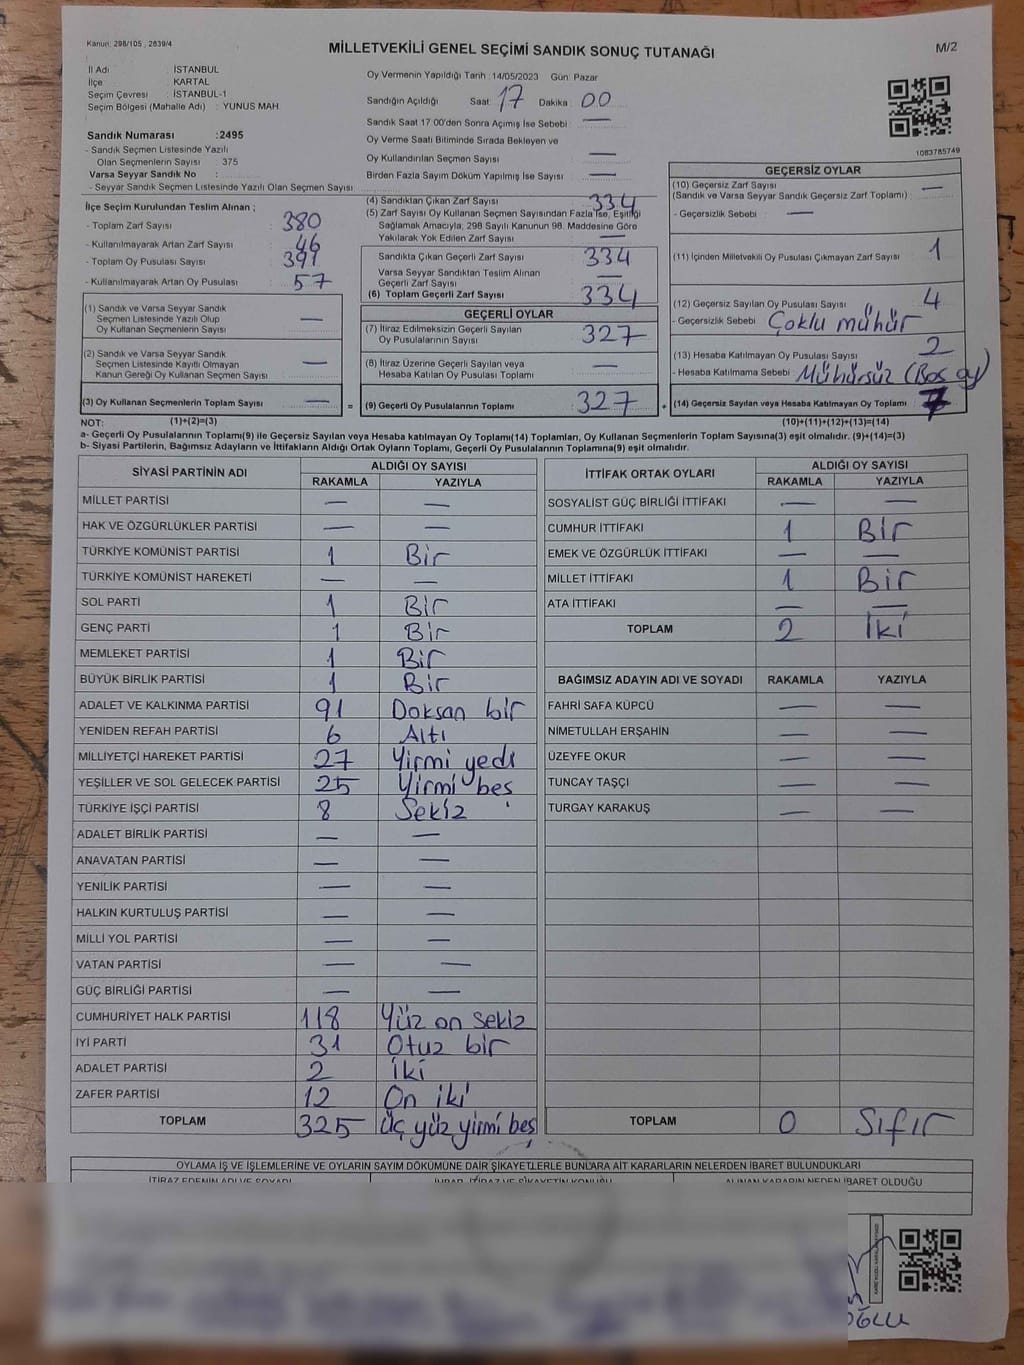 Kanun: 298/105 , 2839/4
MİLLETVEKİLİ GENEL SEÇİMİ SANDIK SONUÇ TUTANAĞI
M/2
İl Adı : İSTANBUL
İlçe : KARTAL
Seçim Çevresi : İSTANBUL-1
Seçim Bölgesi (Mahalle Adı) : YUNUS MAH
Sandık Numarası :2495
- Sandık Seçmen Listesinde Yazılı
Olan Seçmenlerin Sayısı : 375
Varsa Seyyar Sandık No :
- Seyyar Sandık Seçmen Listesinde Yazılı Olan Seçmen Sayısı :
İlçe Seçim Kurulundan Teslim Alınan ;
- Toplam Zarf Sayısı : 380
- Kullanılmayarak Artan Zarf Sayısı : 46
- Toplam Oy Pusulası Sayısı : 391
- Kullanılmayarak Artan Oy Pusulası : 57
(1) Sandık ve Varsa Seyyar Sandık
Seçmen Listesinde Yazılı Olup
Oy Kullanan Seçmenlerin Sayısı : —
(2) Sandık ve Varsa Seyyar Sandık
Seçmen Listesinde Kayıtlı Olmayan
Kanun Gereği Oy Kullanan Seçmen Sayısı : —
(3) Oy Kullanan Seçmenlerin Toplam Sayısı : — =
Oy Vermenin Yapıldığı Tarih :14/05/2023 Gün: Pazar
Sandığın Açıldığı Saat: 17 Dakika: 00
Sandık Saat 17 00'den Sonra Açımış İse Sebebi : —
Oy Verme Saati Bitiminde Sırada Bekleyen ve
Oy Kullandırılan Seçmen Sayısı : —
Birden Fazla Sayım Döküm Yapılmış İse Sayısı : —
(4) Sandıktan Çıkan Zarf Sayısı : 334
(5) Zarf Sayısı Oy Kullanan Seçmen Sayısından Fazla İse, Eşitliği
Sağlamak Amacıyla, 298 Sayılı Kanunun 98. Maddesine Göre
Yakılarak Yok Edilen Zarf Sayısı : —
Sandıkta Çıkan Geçerli Zarf Sayısı : 334
Varsa Seyyar Sandıktan Teslim Alınan
Geçerli Zarf Sayısı : —
(6) Toplam Geçerli Zarf Sayısı : 334
GEÇERLİ OYLAR
(7) İtiraz Edilmeksizin Geçerli Sayılan
Oy Pusulalarının Sayısı : 327
(8) İtiraz Üzerine Geçerli Sayılan veya
Hesaba Katılan Oy Pusulası Toplamı : —
(9) Geçerli Oy Pusulalarının Toplamı : 327 +
1083785749
GEÇERSİZ OYLAR
(10) Geçersiz Zarf Sayısı
(Sandık ve Varsa Seyyar Sandık Geçersiz Zarf Toplamı) : —
- Geçersizlik Sebebi : —
(11) İçinden Milletvekili Oy Pusulası Çıkmayan Zarf Sayısı : 1
(12) Geçersiz Sayılan Oy Pusulası Sayısı : 4
- Geçersizlik Sebebi : Çoklu mühür
(13) Hesaba Katılmayan Oy Pusulası Sayısı : 2
- Hesaba Katılmama Sebebi : Mühürsüz (Boş oy)
(14) Geçersiz Sayılan veya Hesaba Katılmayan Oy Toplamı : 7
NOT: (1)+(2)=(3) (10)+(11)+(12)+(13)=(14)
a- Geçerli Oy Pusulalarının Toplamı(9) ile Geçersiz Sayılan veya Hesaba katılmayan Oy Toplamı(14) Toplamları, Oy Kullanan Seçmenlerin Toplam Sayısına(3) eşit olmalıdır. (9)+(14)=(3)
b- Siyasi Partilerin, Bağımsız Adayların ve İttifakların Aldığı Ortak Oyların Toplamı, Geçerli Oy Pusulalarının Toplamına(9) eşit olmalıdır.
SİYASİ PARTİNİN ADI ALDIĞI OY SAYISI
RAKAMLA YAZIYLA
MİLLET PARTİSİ — —
HAK VE ÖZGÜRLÜKLER PARTİSİ — —
TÜRKİYE KOMÜNİST PARTİSİ 1 Bir
TÜRKİYE KOMÜNİST HAREKETİ — —
SOL PARTİ 1 Bir
GENÇ PARTİ 1 Bir
MEMLEKET PARTİSİ 1 Bir
BÜYÜK BİRLİK PARTİSİ 1 Bir
ADALET VE KALKINMA PARTİSİ 91 Doksan bir
YENİDEN REFAH PARTİSİ 6 Altı
MİLLİYETÇİ HAREKET PARTİSİ 27 Yirmi yedi
YEŞİLLER VE SOL GELECEK PARTİSİ 25 Yirmi beş
TÜRKİYE İŞÇİ PARTİSİ 8 Sekiz
ADALET BİRLİK PARTİSİ — —
ANAVATAN PARTİSİ — —
YENİLİK PARTİSİ — —
HALKIN KURTULUŞ PARTİSİ — —
MİLLİ YOL PARTİSİ — —
VATAN PARTİSİ — —
GÜÇ BİRLİĞİ PARTİSİ — —
CUMHURİYET HALK PARTİSİ 118 Yüz on sekiz
İYİ PARTİ 31 Otuz bir
ADALET PARTİSİ 2 İki
ZAFER PARTİSİ 12 On iki
TOPLAM 325 Üç yüz yirmi beş
İTTİFAK ORTAK OYLARI ALDIĞI OY SAYISI
RAKAMLA YAZIYLA
SOSYALİST GÜÇ BİRLİĞİ İTTİFAKI — —
CUMHUR İTTİFAKI 1 Bir
EMEK VE ÖZGÜRLÜK İTTİFAKI — —
MİLLET İTTİFAKI 1 Bir
ATA İTTİFAKI — —
TOPLAM 2 İki
BAĞIMSIZ ADAYIN ADI VE SOYADI RAKAMLA YAZIYLA
FAHRİ SAFA KÜPCÜ — —
NİMETULLAH ERŞAHİN — —
ÜZEYFE OKUR — —
TUNCAY TAŞÇI — —
TURGAY KARAKUŞ — —
TOPLAM 0 Sıfır
OYLAMA İŞ VE İŞLEMLERİNE VE OYLARIN SAYIM DÖKÜMÜNE DAİR ŞİKAYETLERLE BUNLARA AİT KARARLARIN NELERDEN İBARET BULUNDUKLARI
İTİRAZ EDENİN ADI VE SOYADI İHBAR, İTİRAZ VE ŞİKAYETİN KONUSU ALINAN KARARIN NEDEN İBARET OLDUĞU